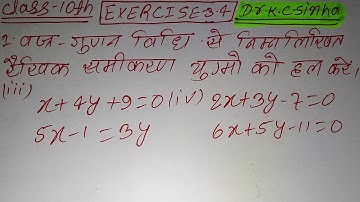 class-10th EXERCISE-3.4 Dr.K.C.Sinha
1. वज्र-गुणन विधि से निम्नलिखित
रैखिक समीकरण युग्मो को हल करें।
(iii) x+4y+9=0 (iv) 2x+3y-7=0
5x-1=3y 6x+5y-11=0